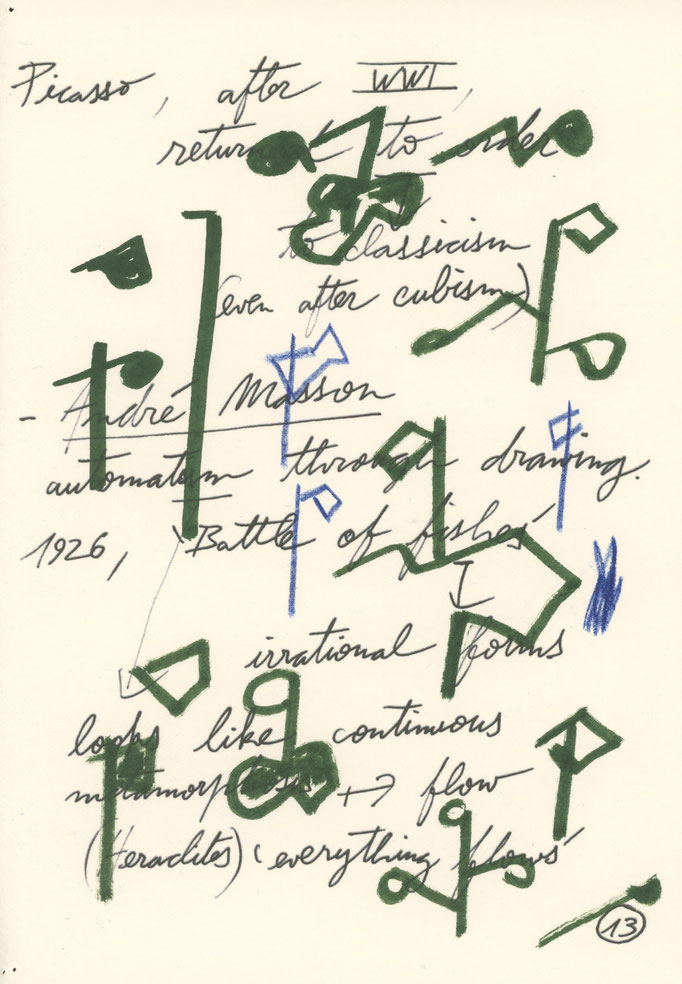 Picasso, after WWI,
returned to order
to classicism
(even after cubism)
- André Masson
automatism through drawing.
1926, 'Battle of fishes'
irrational forms
looks like continuous
metamorphosis ↔ flow
(Heraclites) 'everything flows'
13